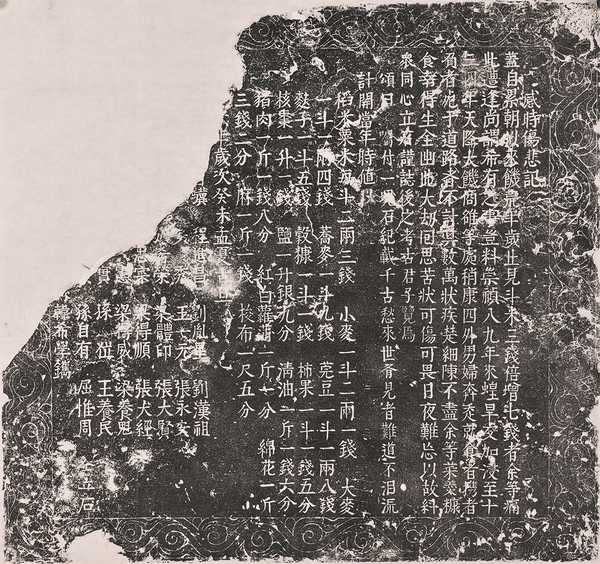 感時傷悲記
蓋自累朝以來饑荒年歲止見斗米三錢倍增七錢者余等痛
此遭逢尚謂希有之事豈料崇禎八九年來蝗旱交加浸至十
三四年天降大饑商雒等處稍康四外男婦奔走就食者鬥者
有者庇于道路者不計其數萬狀疾楚細陳不盡余等菜羹糠
食幸得生全幽此大劫回思苦狀可傷可畏日夜難忘以故糾
衆同心立石謹誌後之考古君子覽焉
頌曰 囑付一塊石紀載千古愁來世吝見者難道不泪流
計開當年時值
稻米粟米每斗二兩三錢 小麥一斗二兩一錢 大麥
一斗一兩四錢 蕎麥一斗九錢 莞豆一斗一兩八錢
麩子一斗五錢 穀糠一斗一錢 柿果一斗一錢五分
核棗一升一錢 鹽一升銀九分 清油一斤一錢六分
猪肉一斤一錢八分 紅白蘿蔔一斤七分 綿花一斤
三錢二分 麻一斤一錢 梭布一尺五分
歲次癸未孟
劉漢祖
王 元 張永安
梁體印 張大賢
梁得順 張犬經
威 梁養魁
孫 王養民
孫自有 屈惟周
韓希學鐫 立石